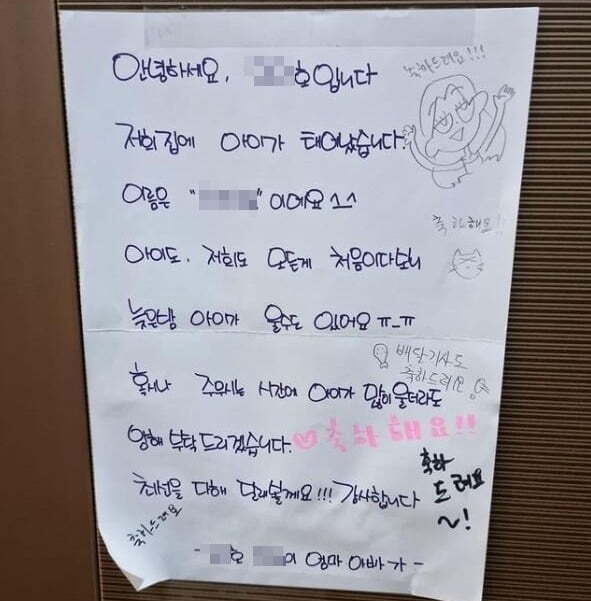 안녕하세요. 호입니다
축하드려요!!!
저희집에 아이가 태어났습니다.
이름은 "" 이에요 ^_^
축하해요!!
아이도. 저희도 모든게 처음이다보니
늦은밤 아이가 울수도 있어요 ㅠ_ㅠ
배달기사도
축하드려요
혹시나 주무시는 시간에 아이가 많이 울더라도
양해 부탁드리겠습니다.
♡축하해요!!
최선을 다해 달래볼께요!!! 감사합니다
축하
드려요
~!
축하드려요
- 호 이 엄마 아빠가 -